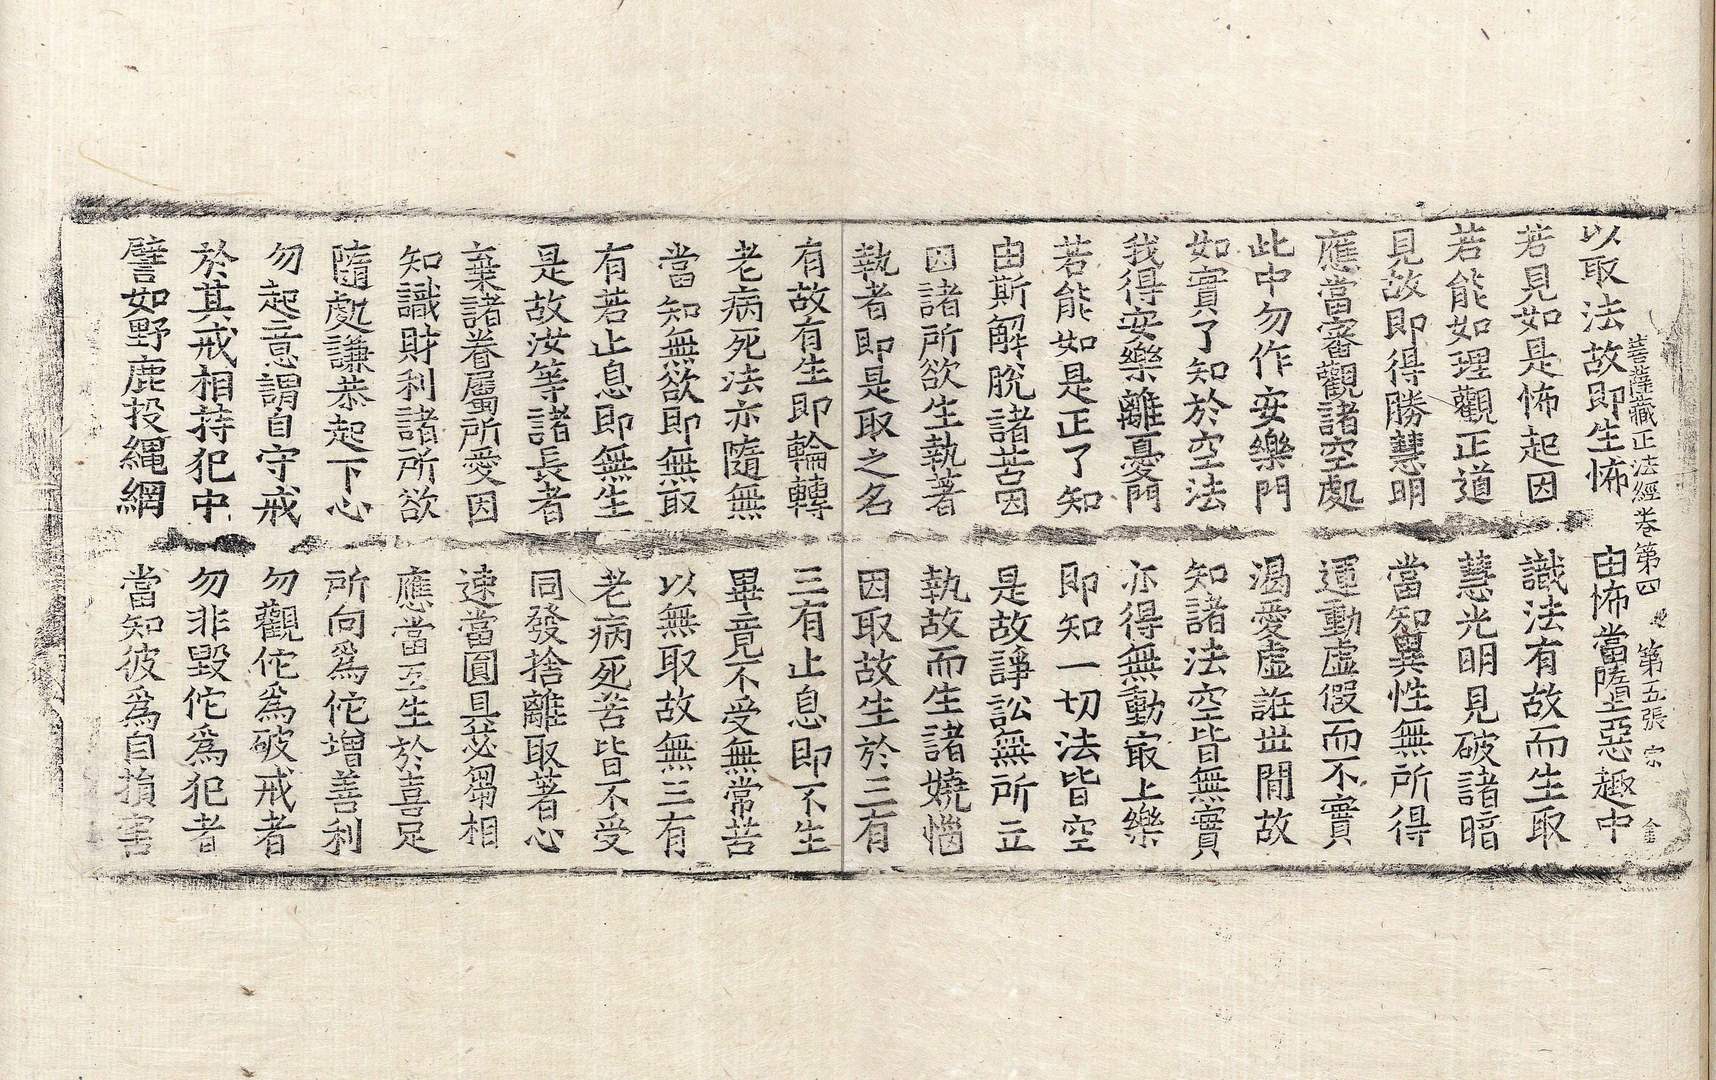 菩薩藏正法經卷第四 第五張 宗 金
以取法故即生怖 由怖當墮惡趣中
若見如是怖起因 識法有故而生取
若能如理觀正道 慧光明見破諸暗
見故即得勝慧明 當知異性無所得
應當審觀諸空處 運動虛假而不實
此中勿作安樂門 渴愛虛誑世間故
如實了知於空法 知諸法空皆無實
我得安樂離憂門 亦得無動冣上樂
若能如是正了知 即知一切法皆空
由斯解脫諸苦因 是故諍訟無所立
因諸所欲生執著 執故而生諸嬈惱
執者即是取之名 因取故生於三有
有故有生即輪轉 三有止息即不生
老病死法亦隨無 畢竟不受無常苦
當知無欲即無取 以無取故無三有
有若止息即無生 老病死苦皆不受
是故汝等諸長者 同發捨離取著心
棄諸眷屬所愛因 速當圓具苾芻相
知識財利諸所欲 應當互生於喜足
隨處謙恭起下心 所向爲佗增善利
勿起意謂自守戒 勿觀佗爲破戒者
於其戒相持犯中 勿非毀佗爲犯者
譬如野鹿投繩網 當知彼爲自損害